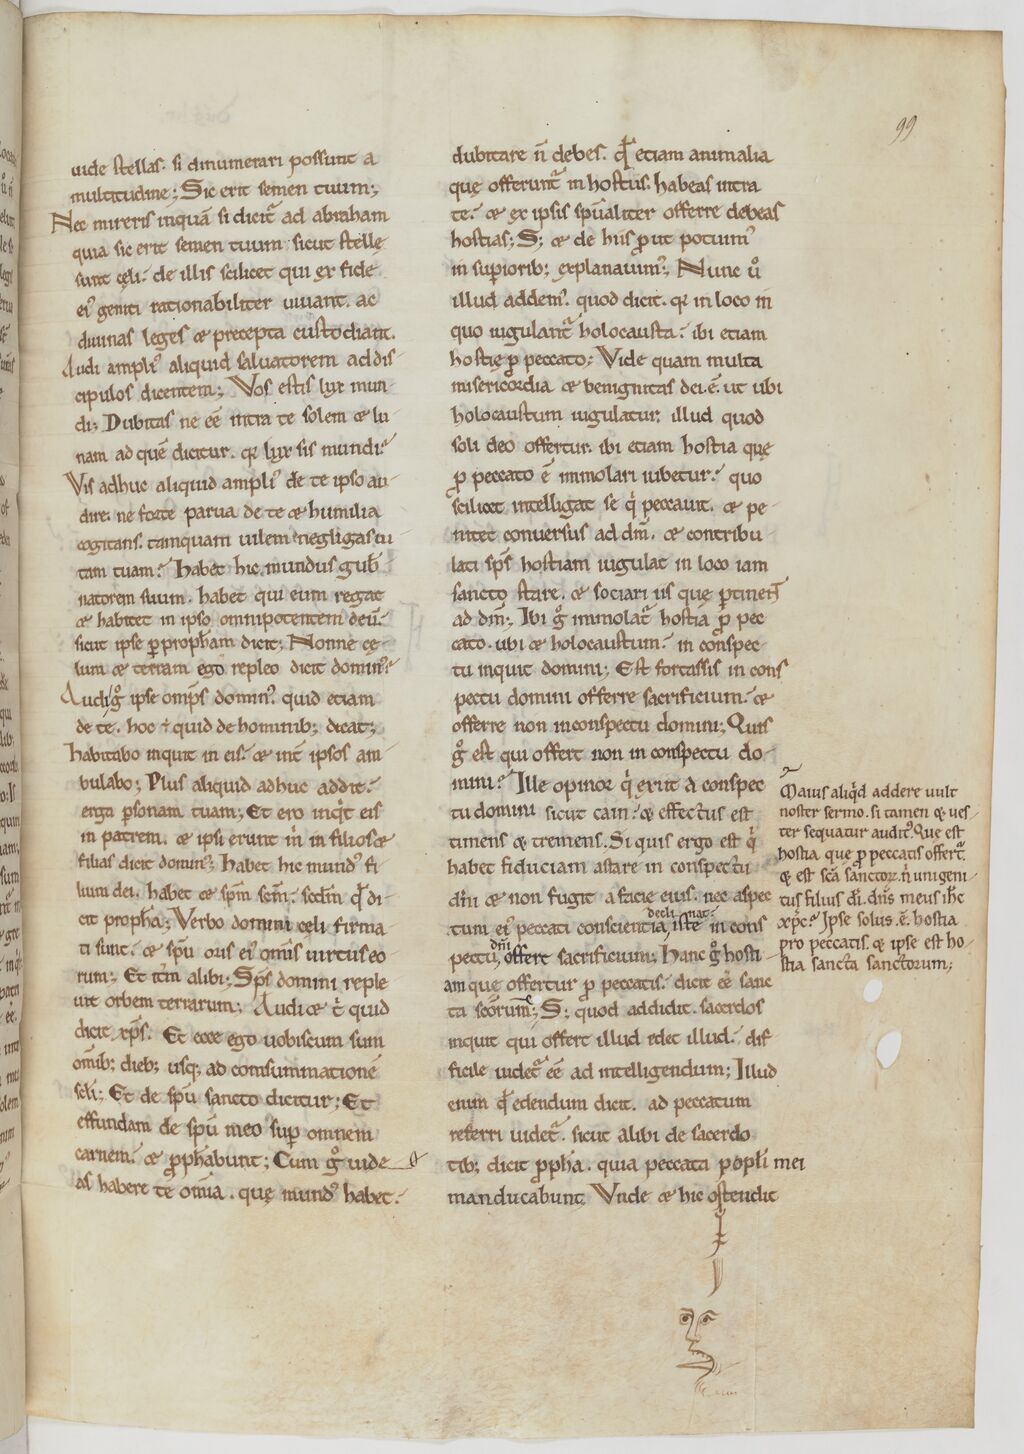 99
uide stellas. si dinumerari possunt a
multitudine; Sic erit semen tuum;
Nec mireris inquā si dicit᷑ ad abraham
quia sic erit semen tuum sicut stellę
sunt cęli. de illis scilicet qui ex fide
ei᷒ geniti rationabiliter uiuant. ac
diuinas leges & precepta custodiant.
Audi ampli᷒ aliquid saluatorem addis-
cipulos dicentem; Vos estis lux mun-
di; Dubitas ne eē intra te solem & lu-
nam ad quē dicitur. qr lux sis mundi?
Vis adhuc aliquid ampli᷒ de te ipso au-
dire. ne forte parua de te & humilia
cogitans. tamquam uilem negligas ui-
tam tuam? Habet hic mundus gub̄-
natorem suum. habet qui eum regat
& habitet in ipso omnipotentem deū.
sicut ipse ꝑ prophām dicit; Nonne cę-
lum & terram ego repleo dicit domin᷒?
Audi gͦ ipse omp̄s domin᷒. quid etiam
de te. hoc ÷ quid de hominib; dicat;
habitabo inquit in eis. & int̄ ipsos am-
bulabo; Plus aliquid adhuc addit.
erga ꝑsonam tuam; Et ero inqͥt eis
in patrem. & ipsi erunt m̄ in filios &
filias dicit domin᷒; Habet hic mund᷒ fi-
lium dei. habet & sp̄m sc̄m. scd̄m qd̄ di-
cit prophā; Verbo domini cęli firma-
ti sunt. & sp̄u oris ei᷒ om̄is uirtus eo-
rum; Et it̄m alibi; Sp̄s domini reple-
uit orbem terrarum; Audi & t̄ quid
dicit xp̄s. Et ecce ego uobiscum sum
om̄ib; dieb; usq; ad consummationē
sc̄li; Et de sp̄u sancto dicitur; Et
effundam de sp̄u meo suꝑ omnem
carnem. & ꝓph̄abunt; Cum gͦ uide-
as habere te om̄ia. quę mund᷒ habet.
dubitare n̄ debes. qd̄ etiam animalia
quę offerunt᷑ in hostiis. habeas intra
te. & ex ipsis sp̄ualiter offerre debeas
hostias; S; & de hiis ꝓut potuim᷒
in suꝑiorib; explanauim᷒; Nunc uͦ
illud addem᷒. quod dicit. qr in loco in
quo iugulant᷑ holocausta. ibi etiam
hostię ꝓ peccato; Vide quam multa
misericordia & benignitas dei ē. ut ubi
holocaustum iugulatur. illud quod
soli deo offertur. ibi etiam hostia quę
ꝓ peccato ē immolari iubetur. quo
scilicet intelligat se qͥ peccauit. & pe-
nitet conuersus ad dm̄. & contribu-
lati sp̄s hostiam iugulat in loco iam
sancto stare. & sociari iis quę ꝑtinent
ad dm̄; Ibi gͦ immolat᷑ hostia ꝓ pec-
cato. ubi & holocaustum. in conspec-
tu inquit domini; Est fortassis in cons-
pectu domini offerre sacrificium. &
offerre non inconspectu domini; Quis
gͦ est qui offert non in conspectu do-
mini? Ille opinor qͥ exiit a conspec-
tu domini sicut cain. & effectus est
timens & tremens. Si quis ergo est qͥ
habet fiduciam astare in conspectu
dn̄i & non fugit a facie eius. nec aspec-
declinat.
tum ei᷒ peccati conscientia, iste in cons-
dn̄i
pectu, offert sacrificium; Hanc gͦ hosti-
am que offertur ꝓ peccatis. dicit eē sanc-
ta sc̄orum; S; quod addidit. sacerdos
inquit qui offert illud edet illud. dif-
ficile uidet᷑ eē ad intelligendum; Illud
enim qd̄ edendum dicit. ad peccatum
referri uidet᷑. sicut alibi de sacerdo-
tib; dicit ꝓph̄a. quia peccata popli mei
manducabunt. Vnde & hic ostendit
Maius aliqͥd addere uult
noster sermo. si tam̄ & ues-
ter sequatur audit᷒. Que est
hostia que ꝓ peccatis offert᷑
& est sc̄a sanctor. n̄ unigeni-
tus filius di̅. dn̄s meus ih̄c
xp̄c? Ipse solus ē hostia
pro peccatis. & ipse est ho-
stia sancta sanctorum;